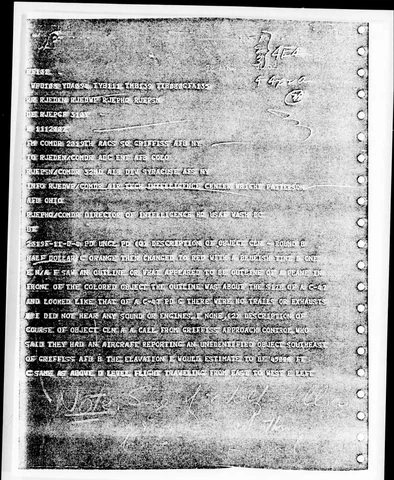 YDA094 TYB111 TMB139
RJEDEN RJEDWP RJEPHQ RJEPSN
DE RJEPGF 310X
111200Z
FM COMDR 2019TH AACS SQ GRIFFISS AFB NY
TO RJEDEN/COMDR ADC ENT AFB COLO
RJEPSN/COMDR 32ND AIR DIV SYRACUSE AFS NY
INFO RJEDWP/COMDR AIR TECH INTELLIGENCE CENTER WRIGHT PATTERSON
AFB OHIO
RJEPHQ/COMDR DIRECTOR OF INTELLIGENCE HQ USAF WASH DC
UNCL PD (1) DESCRIPTION OF OBJECT CLN A ROUND B
HALF DOLLAR C ORANGE THEN CHANGED TO RED WITH A BLUEISH TING D ONE
E N/A F SAW AN OUTLINE OR WHAT APPEARED TO BE OUTLINE OF A PLANE IN
FRONT OF THE COLORED OBJECT THE OUTLINE WAS ABOUT THE SIZE OF A C-47
AND LOOKED LIKE THAT OF A C-47 PD G THERE WERE NO TRAILS OR EXHAUSTS
H I DID NOT HEAR ANY SOUND OR ENGINES, I NONE, (2) DESCRIPTION OF
COURSE OF OBJECT CLN A A CALL FROM GRIFFISS APPROACH CONTROL WHO
SAID THEY HAD AN AIRCRAFT REPORTING AN UNIDENTIFIED OBJECT SOUTHEAST
OF GRIFFISS AFB B THE ELAVATION I WOULD ESTIMATE TO BE FT
C SAME AS ABOVE D LEVEL FLIGHT TRAVELING FROM EAST TO WEST E
Note